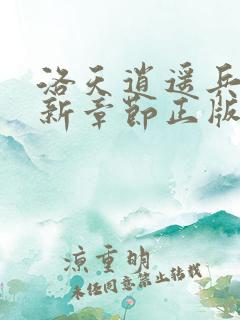 洛天逍遥兵
新章节正版
凉重明
未经同意禁止转载